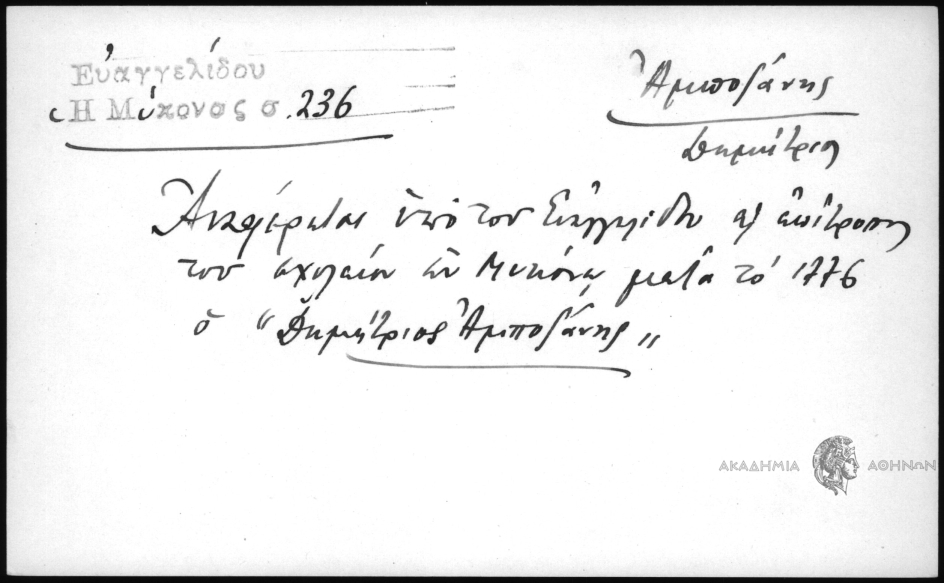 Εὐαγγελίδου
Ἡ Μύκονος σ. 236
Ἀμποζάνης
Δημήτριος
Ἀναφέρεται ὑπὸ τοῦ Εὐαγγελίδου ὡς ἐπίτροπος
τοῦ σχολείου ἐν Μυκόνῳ μετὰ τὸ 1776
ὁ "Δημήτριος Ἀμποζάνης"
ΑΚΑΔΗΜΙΑ ΑΘΗΝΩΝ